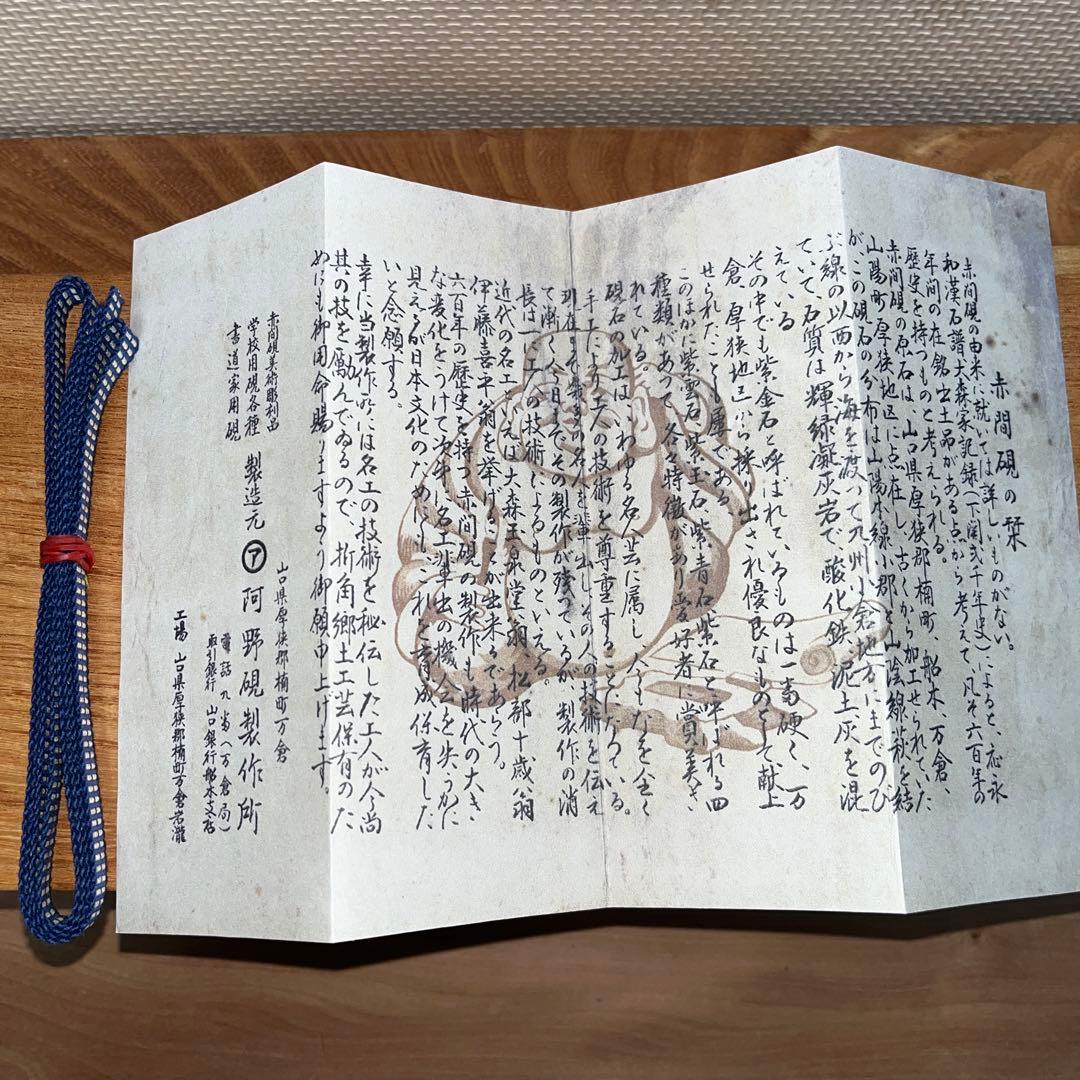 赤間硯の栞
赤間硯の由来に就いては詳しいものがない。
和漢石譜大森家記録(下関弐千年史)によると、応永
年間の在銘出土品がある点から考えて、凡そ六百年の
歴史を持つものと考えられる。
赤間硯の原石は、山口県厚狭郡楠町、船木、万倉、
山陽町厚狭地区に点在し、古くから加工せられていた
が、この硯石の分布は山陽本線小郡と山陰線萩を結
ぶ線の以西から海を渡って九州小倉地方にまでのび
ていて、石質は輝緑凝灰岩で酸化鉄、泥土灰を混
えている
その中でも紫金石と呼ばれているものは一番硬く、万
倉、厚狭地区から採り出され優良なものとして献上
せられたこと屢である
このほかに紫雲石、紫玉石、紫青石、紫石と呼ばれる四
種類があって、各々特徴があり愛好者に賞美さ
れている。
硯石の加工は、いわゆる名人芸に属し、今もなを全く
手工により工人の技術を尊重することになっている。
現在まで幾多の名人を輩出しその人の技術を伝え
て漸く今日までその製作が残っているが、製作の消
長は一に工人の技術によるものといえる。
近代の名工といえば大森玉泉堂翁、松郡十歳翁
伊藤喜平翁を挙げることが出来るであらう。
六百年の歴史を持つ赤間硯の製作も時代の大き
な変化をうけて次第に名工輩出の機会を失うかに
見えるが日本文化のためにもこれを育成保育した
いと念願する。
幸に当製作所には名工の技術を秘伝した工人が今尚
其の技を励んでゐるので、折角郷土工芸保有のた
めにも御用命賜りますよう御願申上げます。
山口県厚狭郡楠町万倉
赤間硯美術彫刻品
学校用硯各種
書道家用硯
製造元 ㋐ 阿野硯製作所
電話九番(万倉局)
取引銀行 山口銀行船木支店
工場 山口県厚狭郡楠町万倉岩滝